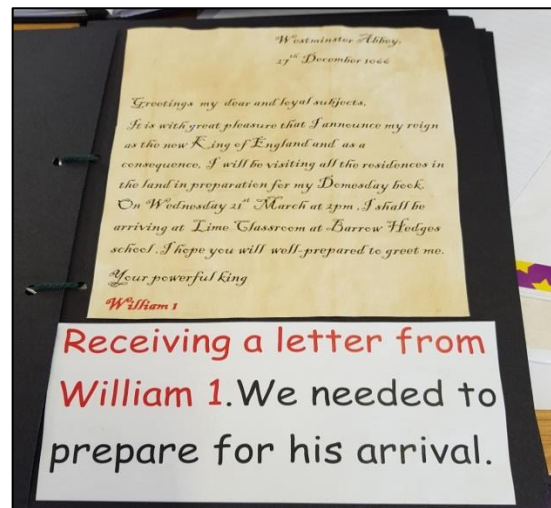 Westminster Abbey.
27th December 1066
Greetings my dear and loyal subjects,
It is with great pleasure that I announce my reign
as the new King of England and as a
consequence, I will be visiting all the residences in
the land in preparation for my Domesday book.
On Wednesday 21st March at 2pm, I shall be
arriving at Lime Classroom at Barrow Hedges
school. I hope you will well-prepared to greet me.
Your powerful king
William 1
Receiving a letter from
William 1.We needed to
prepare for his arrival.